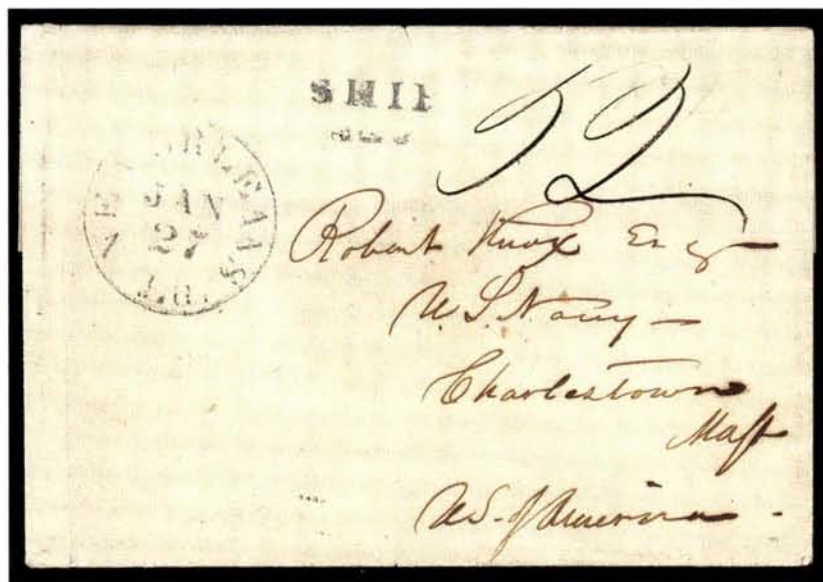 SHIP
52
NEW ORLEANS
JAN
27
La.
Robert Knox Esq
U.S. Navy
Charlestown
Mass
U.S. of America